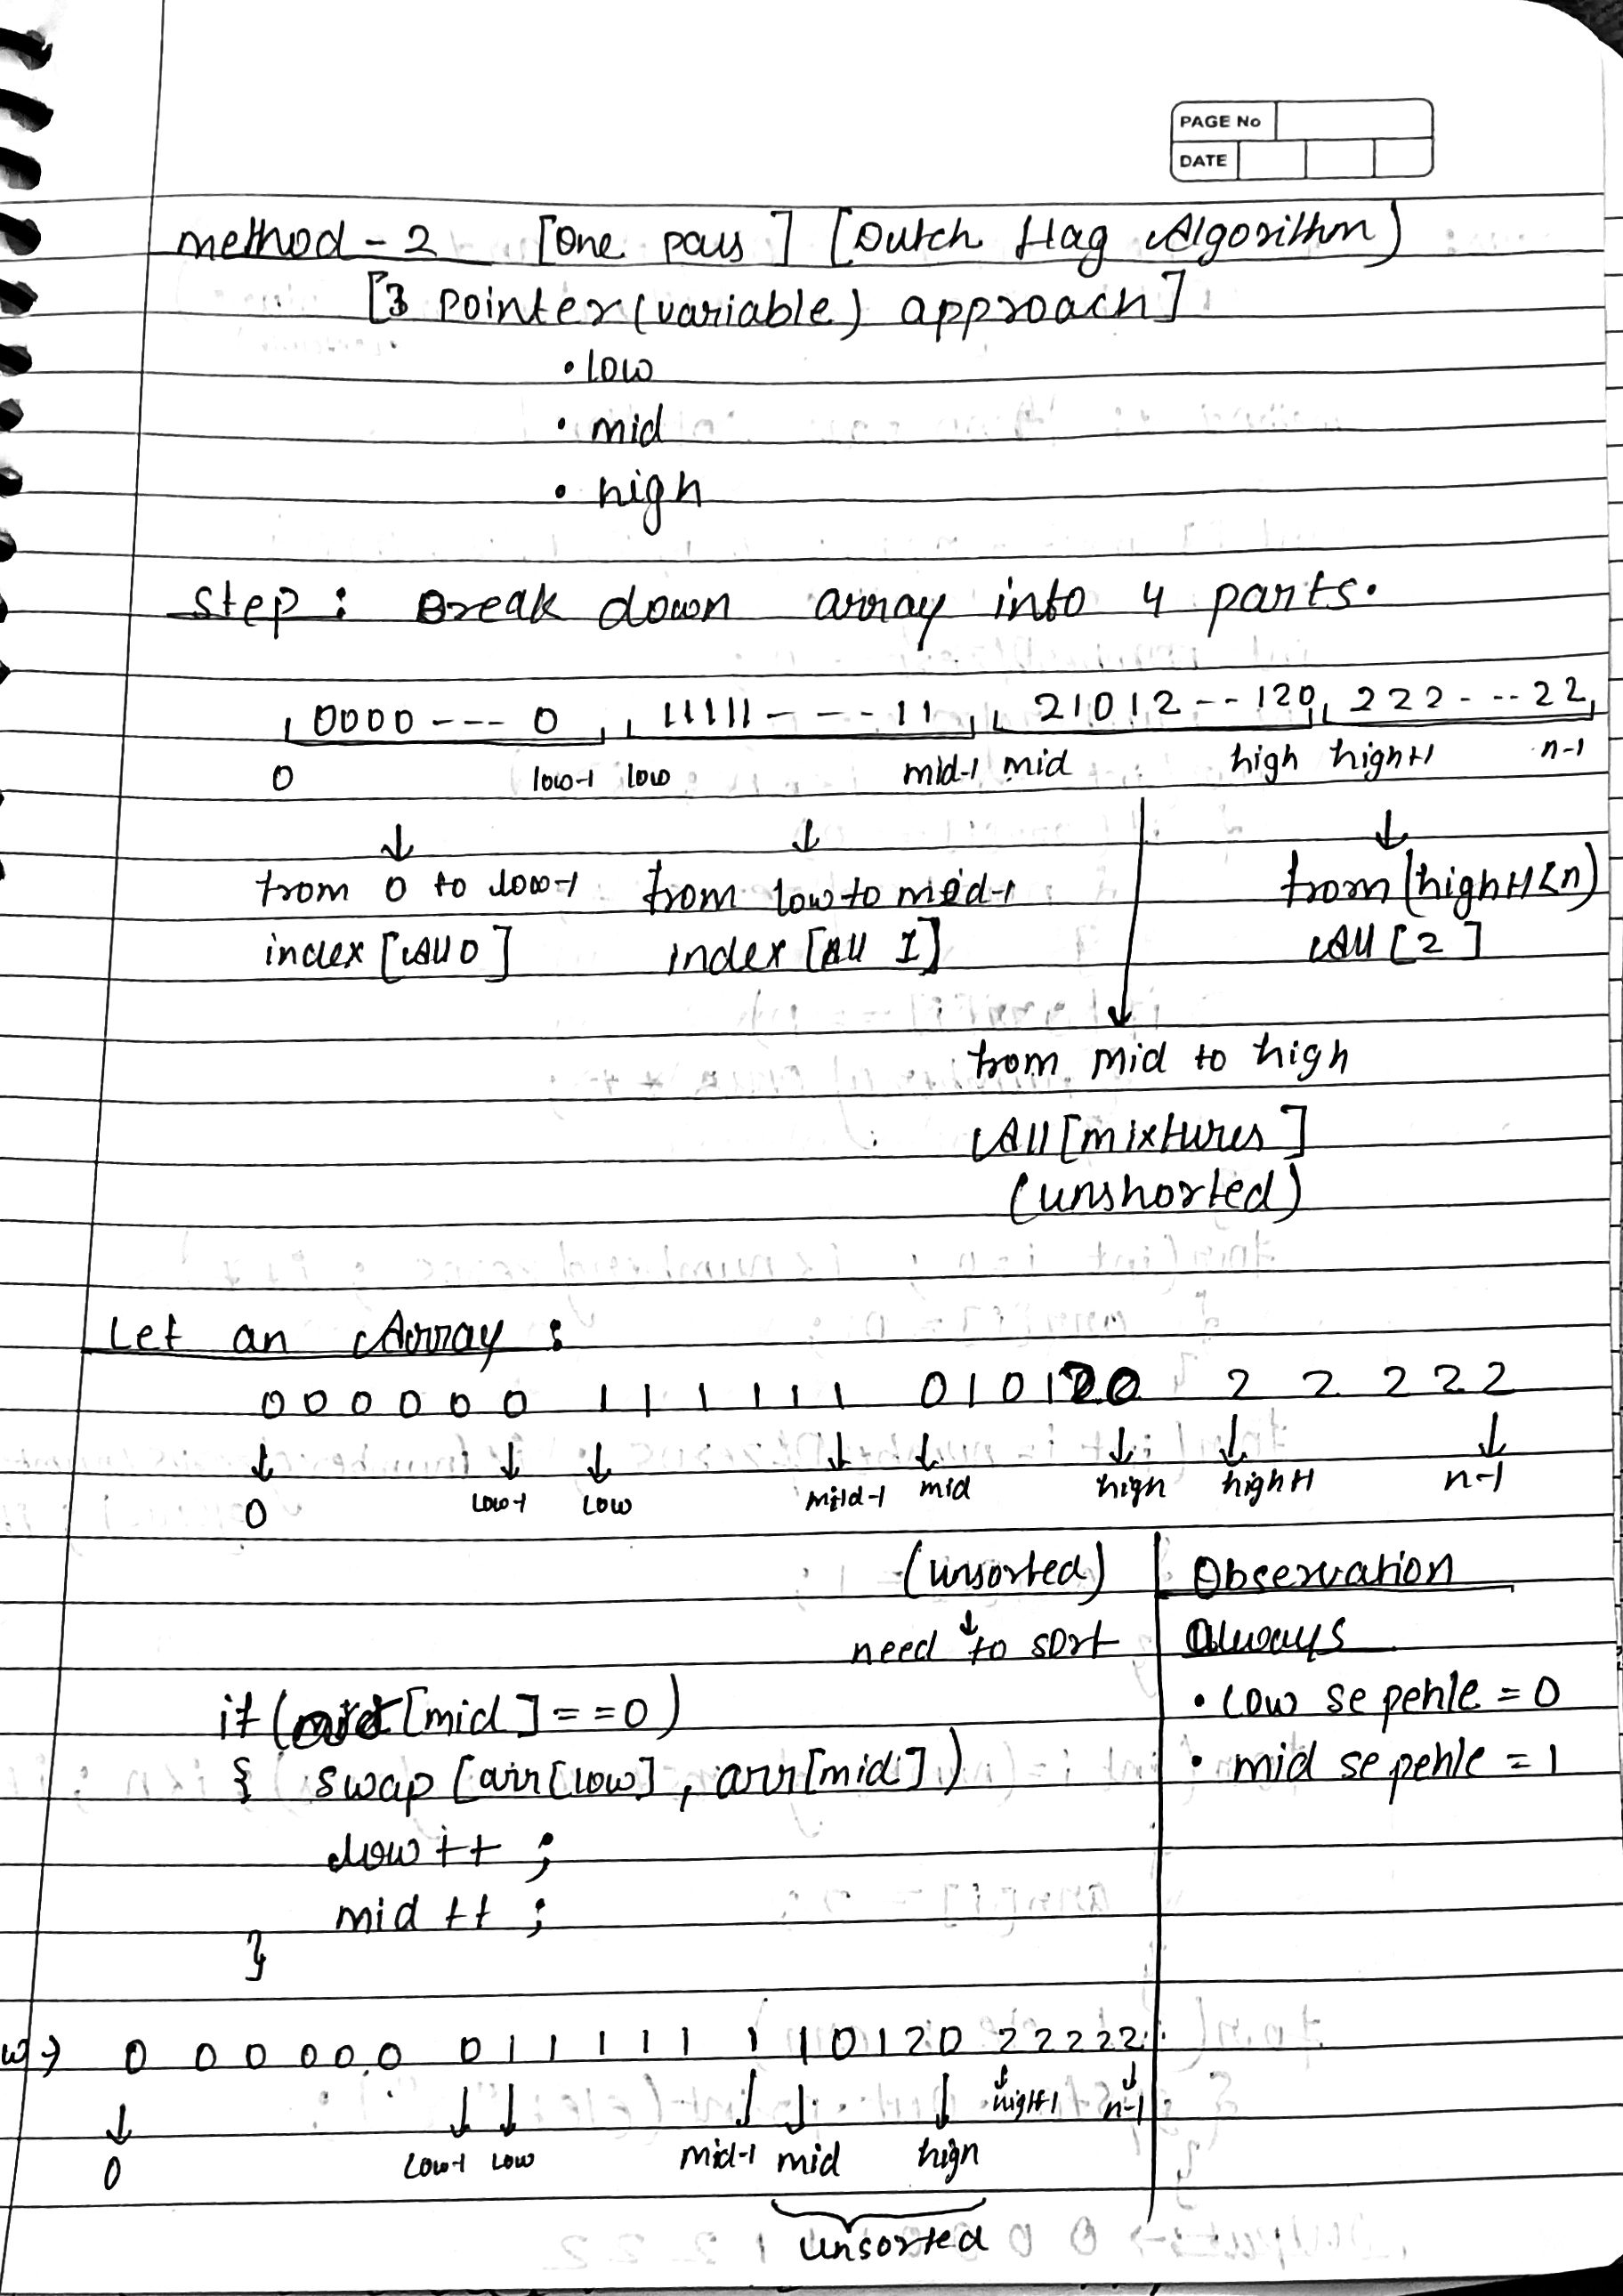 PAGE No
DATE
method - 2 [One pass] [Dutch flag Algorithm)
[3 pointer (variable) approach]
• low
• mid
• high
step : Break down array into 4 parts.
0000 --- 0 11111 - - - 11 21012 -- 120 222 - -- 22
0 low-1 low mid-1 mid high high+1 n-1
↓ ↓ ↓
from 0 to low-1 from low to mid-1 from (high+1<n)
index [All 0] index [All 1] All [2]
↓
from mid to high
All [mixtures]
(unshorted)
Let an Array :
0 0 0 0 0 0 1 1 1 1 1 1 0 1 0 1 2 0 2 2 2 2 2
↓ ↓ ↓ ↓ ↓ ↓ ↓ ↓
0 low-1 low mid-1 mid high high+1 n-1
(unsorted)
↓
need to sort
Observation
always
• low se pehle = 0
• mid se pehle = 1
if ( [mid] == 0)
{ swap [arr[low], arr[mid])
low ++ ;
mid ++ ;
}
0 0 0 0 0 0 0 1 1 1 1 1 1 1 0 1 2 0 2 2 2 2 2
↓ ↓ ↓ ↓ ↓ ↓ ↓ ↓
0 low-1 low mid-1 mid high high+1 n-1
unsorted